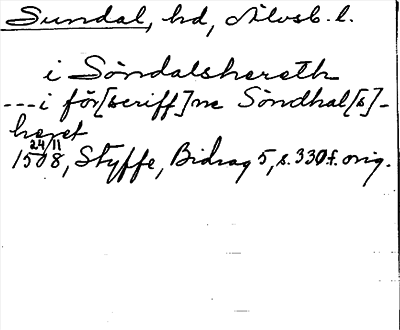 Sundal, hd, Älvsb. l.
i Söndalshereth
---i för[scriff]ne Söndhal[s]-
heret
24/11
1508, Styffe, Bidrag 5, s. 330 f. orig.